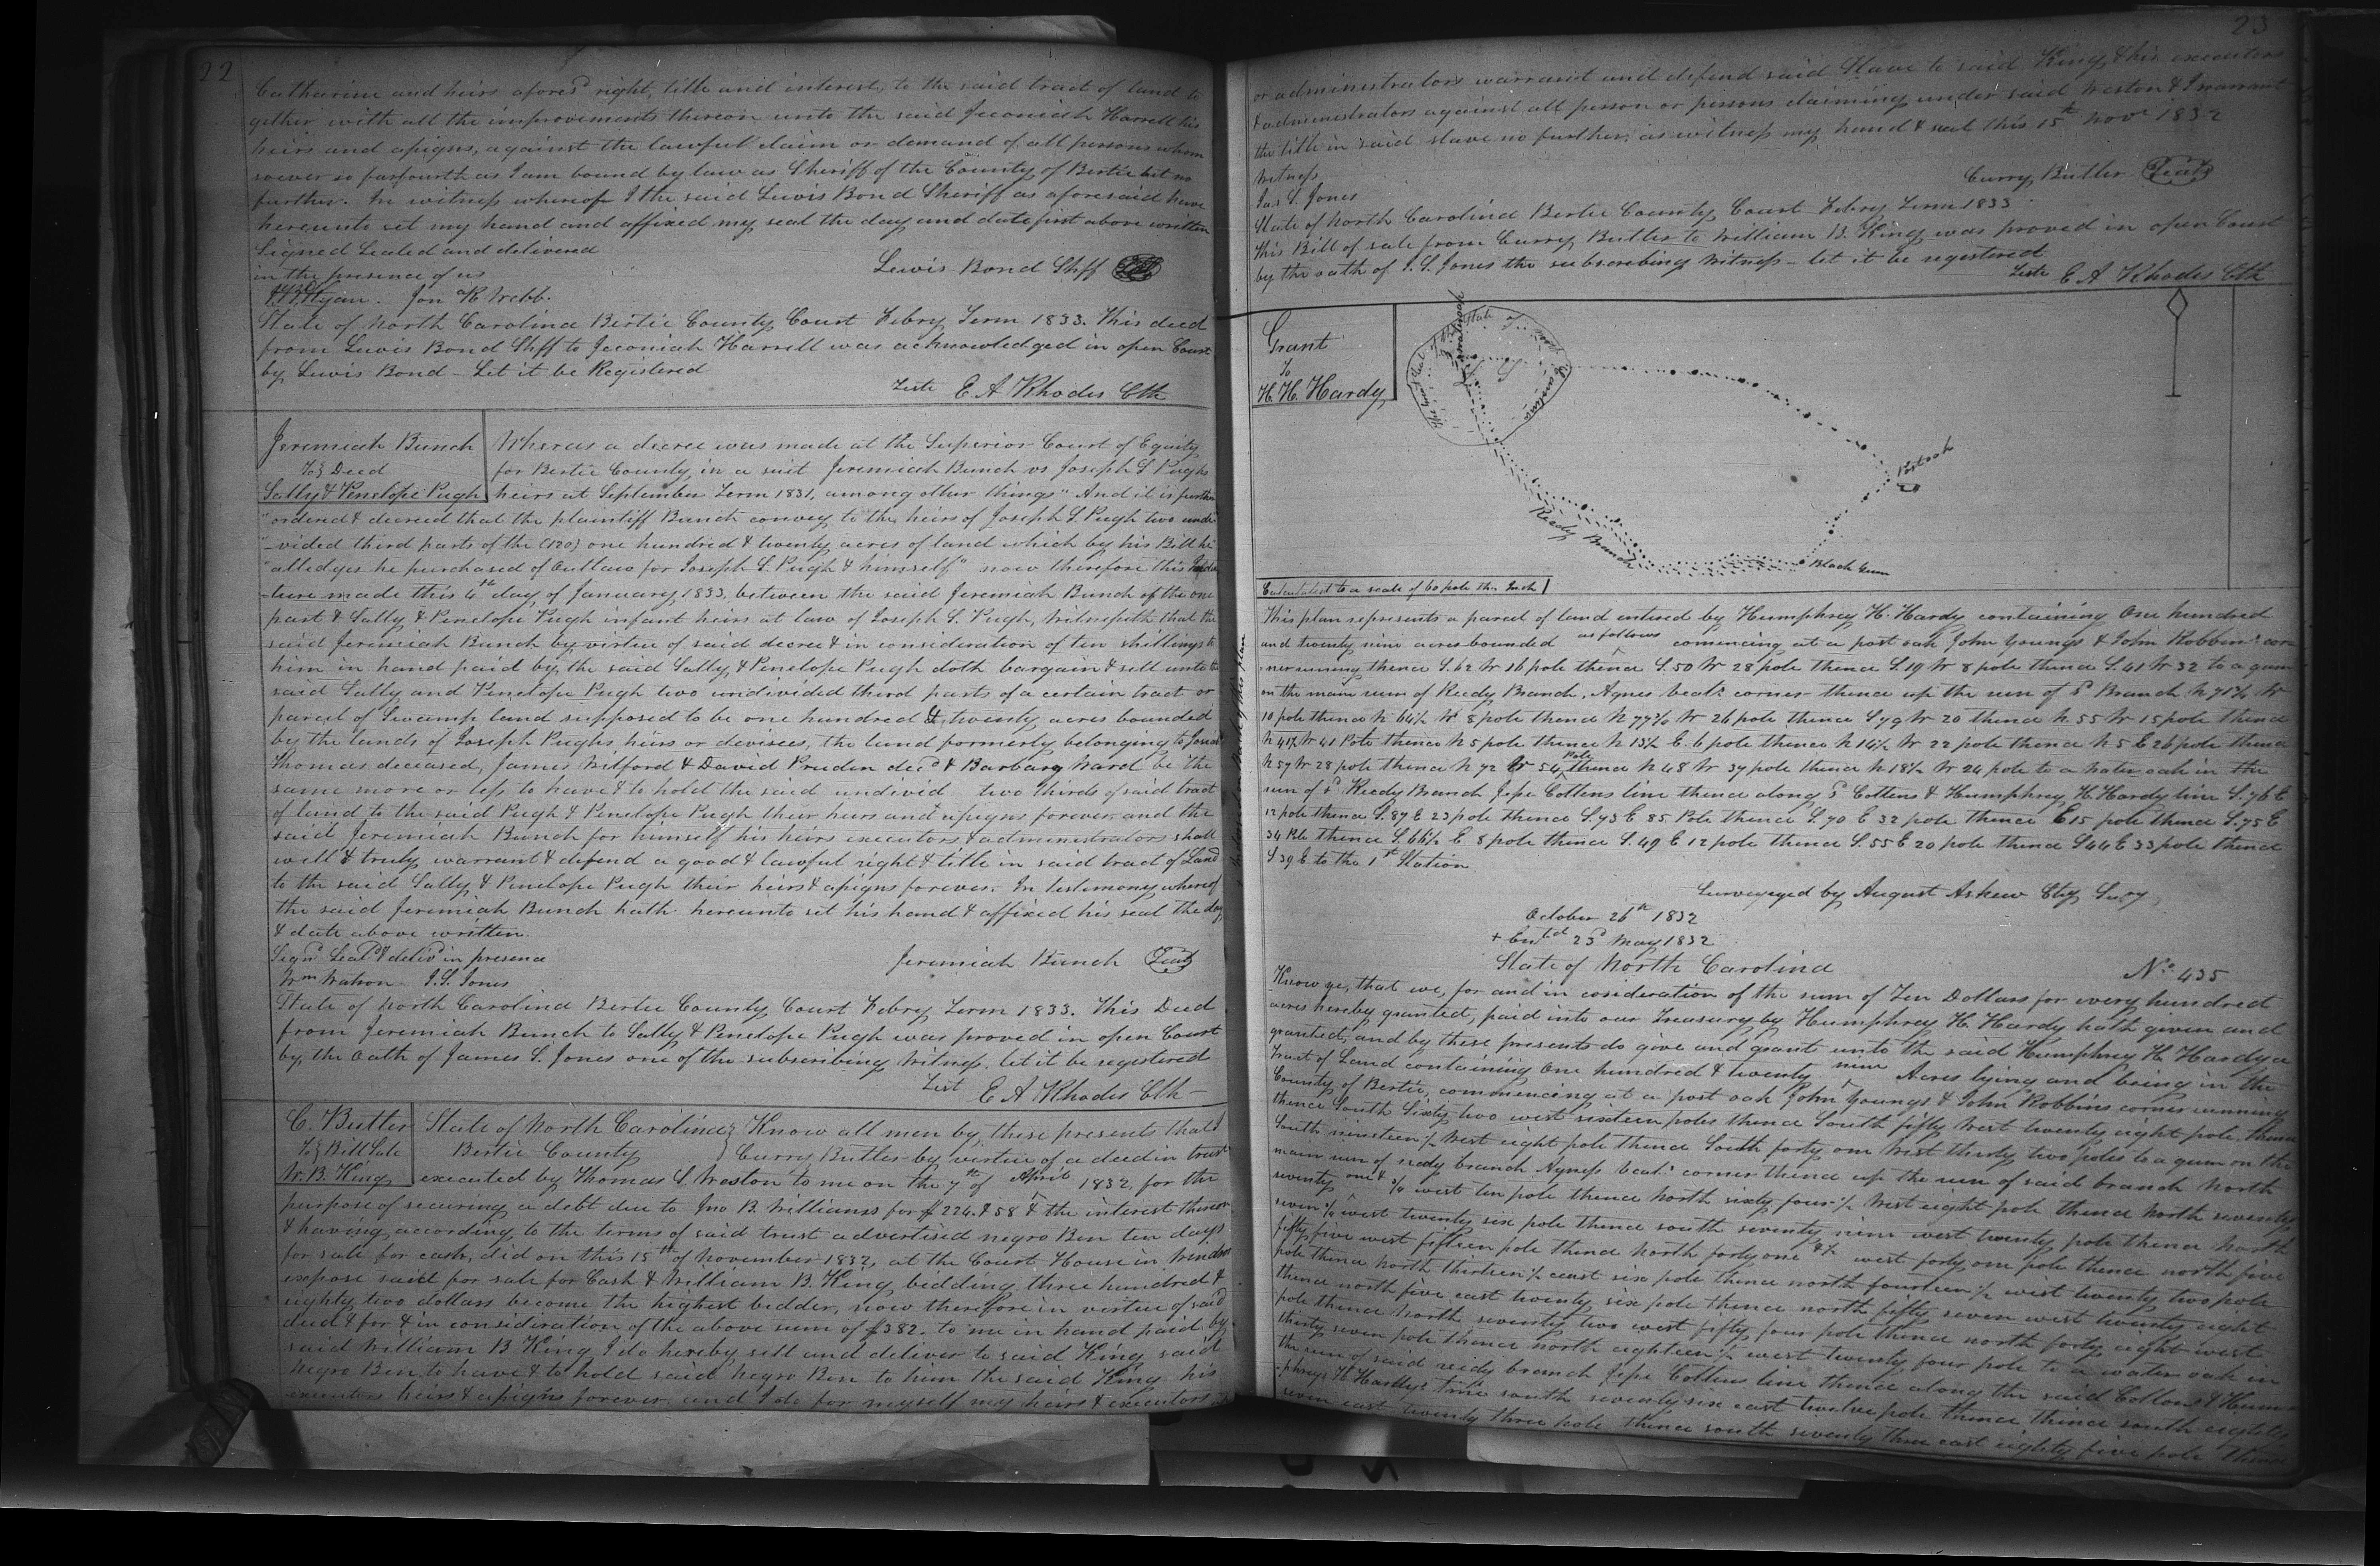 22
Catharine and heirs afores.d right, title and interest, to the said tract of land to
gether with all the improvements thereon unto the said Jeconiah Harrell his
heirs and assigns, against the lawful claim or demand of all persons whom
soever so farfourth as I am bound by law as Sheriff of the County of Bertie but no
further. In witness whereof I the said Lewis Bond Sheriff as aforesaid have
hereunto set my hand and affixed my seal the day and date first above written
Signed Sealed and delivered
in the presence of us
Lewis Bond Shff Seal
Jon. R. Webb.
State of North Carolina Bertie County Court Febry Term 1833. This deed
from Lewis Bond Shff to Jeconiah Harrell was acknowledged in open Court
by Lewis Bond - Let it be Registered
Teste E A Rhodes Clk
Jeremiah Bunch
To } Deed
Sally & Penelope Pugh
Wheras a decree was made at the Superior Court of Equity
for Bertie County, in a suit Jeremiah Bunch vs Joseph S Pughs
heirs at September Term 1831, among other things "And it is further
"ordered & decreed that the plaintiff Bunch convey to the heirs of Joseph S. Pugh two undi
"-vided third parts of the (120) one hundred & twenty acres of land which by his Bill he
"alledges he purchased of Outlaw for Joseph S. Pugh & himself" now therefore this Inden
-ture made this 4th day of January 1833, between the said Jeremiah Bunch of the one
part & Sally & Penelope Pugh infant heirs at law of Joseph S. Pugh, Witnesseth that the
said Jeremiah Bunch by virtue of said decree & in consideration of ten shillings to
him in hand paid by the said Sally & Penelope Pugh doth bargain & sell unto the
said Sally and Penelope Pugh two undivided third parts of a certain tract or
parcel of Swamp land supposed to be one hundred & twenty acres bounded
by the lands of Joseph Pughs heirs or devisees, the land formerly belonging to
Thomas deceased, James Wilford & David Pruden dec.d & Barbary Ward be the
same more or less to have & to hold the said undivid two thirds of said tract
of land to the said Pugh & Penelope Pugh their heirs and assigns forever, and the
said Jeremiah Bunch for himself his heirs executors & administrators shall
well & truly warrant & defend a good & lawful right & title in said tract of Land
to the said Sally & Penelope Pugh their heirs & assigns forever. In testimony whereof
the said Jeremiah Bunch hath hereunto set his hand & affixed his seal the day
& date above written.
Sign.d Seal.d & deliv.d in presence
Jeremiah Bunch Seal
Wm Watson J. S. Jones
State of North Carolina Bertie County Court Febry Term 1833. This Deed
from Jeremiah Bunch to Sally & Penelope Pugh was proved in open Court
by the oath of James S. Jones one of the subscribing Witness, let it be registered
Test E A Rhodes Clk
C. Butler
To } Bill Sale
W. B. King
State of North Carolina } Know all men by these presents that I
Bertie County } Curry Butler by virtue of a deed in trust
executed by Thomas S. Weston to me on the 7th of April 1832, for the
purpose of securing a debt due to Jno B. Williams for $224.58 & the interest thereon
& having according to the terms of said trust advertised negro Ben ten days
for sale for cash, did on this 15th of November 1832, at the Court House in Windsor
expose said for sale for Cash & William B. King bidding three hundred &
eighty two dollars become the highest bidder, now therefore in virtue of said
deed & for & in consideration of the above sum of $382. to me in hand paid by
said William B King I do hereby sell and deliver to said King said
negro Ben, to have & to hold said negro Ben to him the said King his
executors heirs & assigns forever and I do for myself my heirs & executors
23
or administrators warrant and defend said Slave to said King & his executors
& administrators against all person or persons claiming under said Weston & I warrant
the title in said slave no further, as witness my hand & seal this 15th Novr 1832
Witness
Curry Butler Seal
Jas S. Jones
State of North Carolina Bertie County Court Febry Term 1833
This Bill of sale from Curry Butler to William B. King was proved in open Court
by the oath of J. S. Jones the subscribing Witness - let it be registered
Teste E A Rhodes Clk
Grant
To
H. H. Hardy
Reedy Branch
Black Gum
Post oak
Calculated to a scale of 60 pole the Inch
This plan represents a parcel of land entered by Humphrey H. Hardy containing One hundred
and twenty nine acres bounded as follows comencing at a post oak John Youngs & John Robbins cor
-ner running thence S. 62 W 16 pole thence S. 50 W 28 pole thence S. 19 W 8 pole thence S. 41 W 32 to a gum
on the main run of Reedy Branch, Agnes corner thence up the run of s.d Branch N 71 3/4 W
10 pole thence N 64 1/2 W 8 pole thence N 77 3/4 W 26 pole thence S 79 W 20 thence N. 55 W 15 pole thence
N 41 1/2 W 41 Pole thence N 5 pole thence N 13 1/2 E. 6 pole thence N 14 1/2 W 22 pole thence N 5 E 26 pole thence
N 57 W 28 pole thence N 72 W 54 Pole thence N 48 W 37 pole thence N 18 1/2 W 24 pole to a water oak in the
run of s.d Reedy Branch Jesse Cottens line thence along s.d Cottens & Humphrey H. Hardy line S. 76 E
12 pole thence S. 87 E 23 pole thence S. 73 E 85 Pole thence S. 70 E 32 pole thence E 15 pole thence S. 75 E
34 Pole thence S. 66 1/2 E 8 pole thence S. 49 E 12 pole thence S. 55 E 20 pole thence S 44 E 33 pole thence
S. 39 E to the 1st Station
Surveyed by August Askew Cty Sury
October 26th 1832
+ Entd 23d May 1832
State of North Carolina No 435
Know ye, that we, for and in cosideration of the sum of Ten Dollars for every hundred
acres hereby granted, paid into our Treasury by Humphrey H. Hardy hath given and
granted, and by these presents do give and grant unto the said Humphrey H. Hardy a
Tract of Land containing One hundred & twenty nine Acres lying and being in the
County of Bertie, commencing at a post oak John Youngs & John Robbins corner running
thence South Sixty two west sixteen poles thence South fifty West twenty eight pole, thence
South nineteen West eight pole thence South forty one West thirty two poles to a gum on the
main run of reedy branch corner thence up the run of said branch North
seventy one & 3/4 west ten pole thence North sixty four 1/2 West eight pole thence North seventy
seven 3/4 west twenty six pole thence south seventy nine west twenty pole thence North
fifty five west fifteen pole thence North forty one & 1/2 west forty one pole thence north five
pole thence North thirteen 1/2 east six pole thence north fourteen 1/2 west twenty two pole
thence north five east twenty six pole thence north fifty seven west twenty eight
pole thence North seventy two west fifty four pole thence north forty eight west
thirty seven pole thence north eighteen 1/2 west twenty four pole to a water oak in
the run of said reedy branch Jesse Cottens line thence along the said Cottons & Hum
phrey H. Hardys line south seventy six east twelve pole thence thence south eighty
seven east twenty three pole thence south seventy three east eighty five pole thence